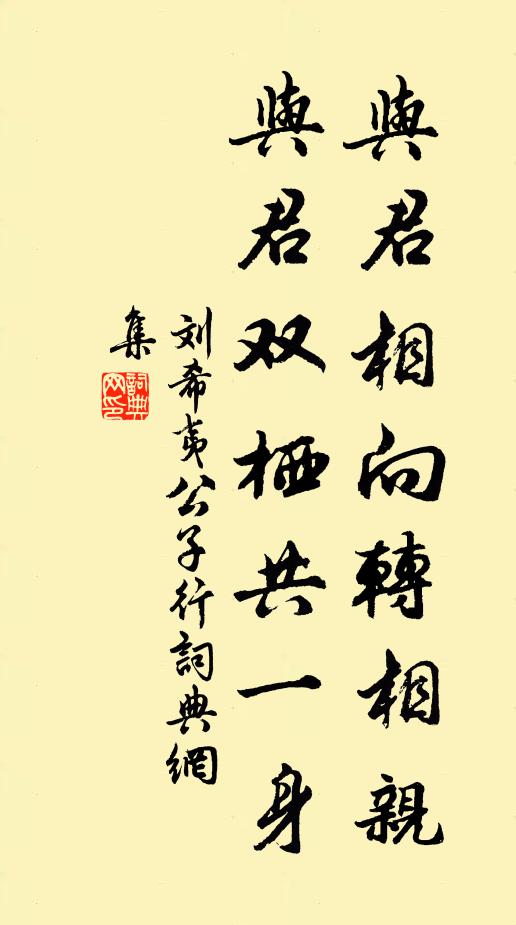 與君相向轉相親
與君双栖共一身
刘希夷公子行詞典網
集
詞典
网印